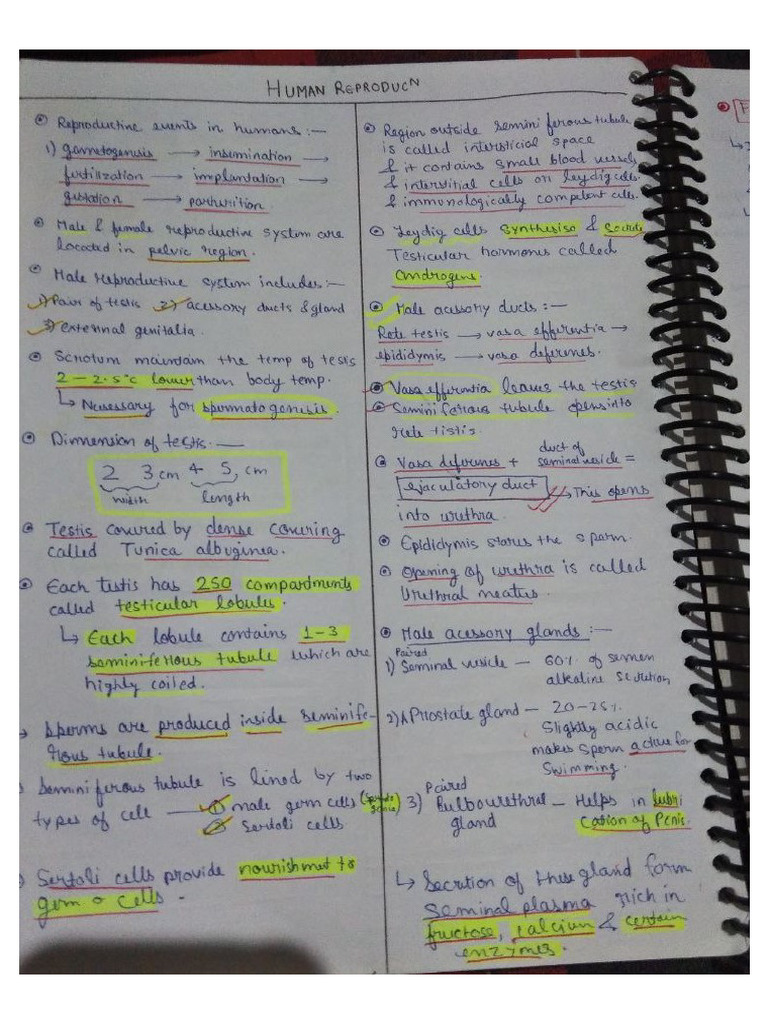 HUMAN REPRODUCN
Reproductive events in humans :—
1) gametogenesis → insemination →
fertilization → implantation →
gestation → parturition.
Male & female reproductive system are
located in pelvic region.
Male reproductive system includes:—
1) Pair of testis 2) acessory ducts & gland
3) external genitalia.
Scrotum maintain the temp of testis
2 – 2.5°C lower than body temp.
↳ Necessary for spermatogenesis.
Dimmension of testis. —
2 3 cm 4 5, cm
width length
Testis covered by dense covering
called Tunica albuginea.
Each testis has 250 compartments
called testicular lobules.
↳ Each lobule contains 1–3
seminiferous tubule which are
highly coiled.
Sperms are produced inside seminife-
rous tubule.
Seminiferous tubule is lined by two
types of cell — 1 male germ cells
2 Sertoli cells
Sertoli cells provide nourishmet to
germ cells.
Region outside seminiferous tubule
is called intersticial space
& it contains small blood vessels
& interstitial cells or leydig cells
& immunologically competent cells.
Leydig cells synthesise & secrete
Testicular hormones called
androgens
Male acessory ducts :—
Rete testis → vasa efferentia →
epididymis → vasa deferenes.
Vasa efferentia leaves the testis
Seminiferous tubule opens into
rete tistis.
Vasa deferenes + duct of
seminal vesicle =
ejaculatory duct → This opens
into urethra.
Epididymis stores the sperm.
Opening of urethra is called
Urethral meatus.
Male acessory glands :—
Paired
1) Seminal vesicle — 60% of semen
alkaline secretion
2) Prostate gland — 20-25%
Slightly acidic
makes sperm active for
Swimming.
Paired
3) Bulbourethral — Helps in lubri
gland cation of Penis.
↳ Secretion of these gland form
seminal plasma rich in
fructose, calcium & certain
enzymes.